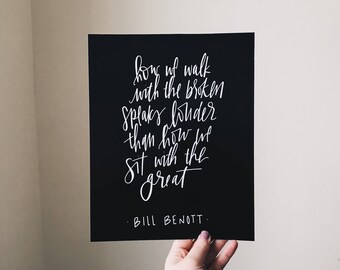 how we walk
with the broken
speaks louder
than how we
sit with the
great
· BILL BENOTT ·